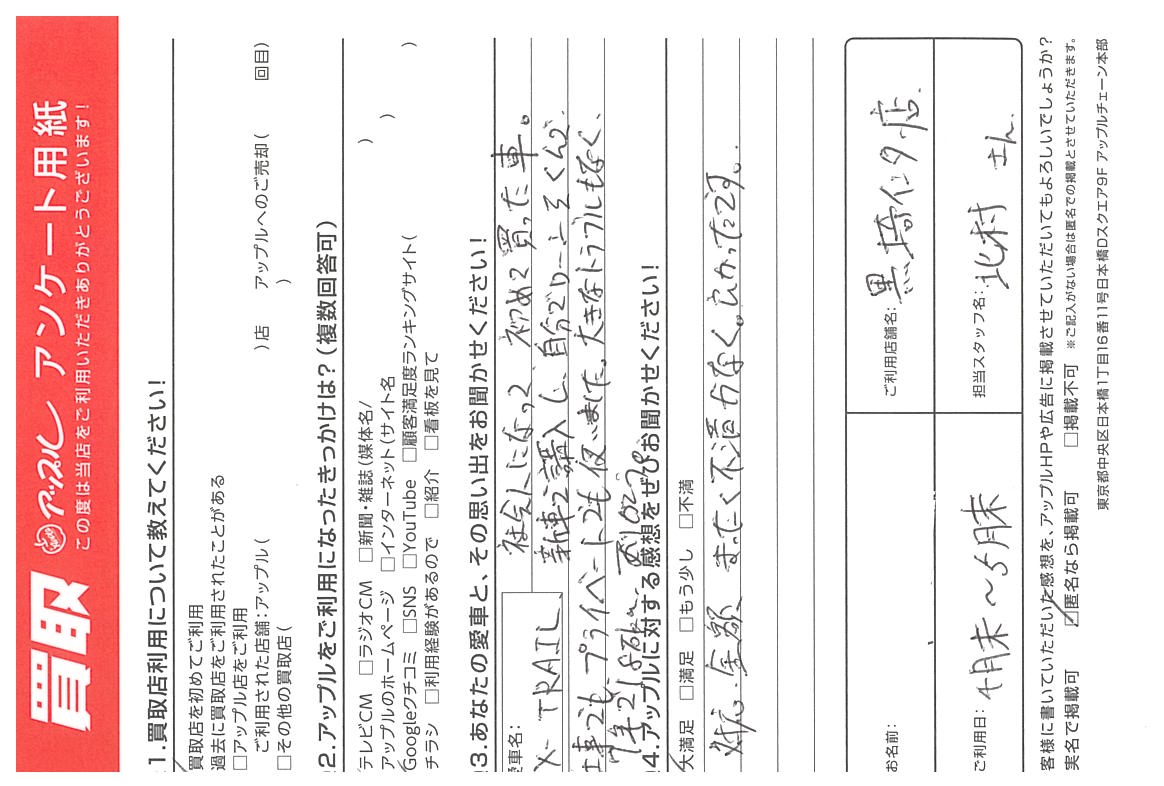 買取 アップル アンケート用紙
この度は当店をご利用いただきありがとうございます!
1.買取店利用について教えてください!
買取店を初めてご利用
過去に買取店をご利用されたことがある
□アップル店をご利用
ご利用された店舗:アップル( )店 アップルへのご売却( 回目)
□その他の買取店( )
2.アップルをご利用になったきっかけは?(複数回答可)
テレビCM □ラジオCM □新聞・雑誌(媒体名/ )
アップルのホームページ □インターネット(サイト名 )
Googleクチコミ □SNS □YouTube □顧客満足度ランキングサイト( )
チラシ □利用経験があるので □紹介 □看板を見て
3.あなたの愛車と、その思い出をお聞かせください!
愛車名:
X-TRAIL
社会人になって 初めて買った車。
新車で購入し、自分でローンを くんで
仕事でも、プライベートでも使いました。大きなトラブルもなく、
7年で18万km
4.アップルに対する感想をぜひお聞かせください!
大満足 □満足 □もう少し □不満
対応、金額 まったく不満がなく。よかったです。
お名前:
ご利用店舗名: 黒埼インター店
ご利用日: 4月末~5月末
担当スタッフ名: 北村 さん
客様に書いていただいた感想を、アップルHPや広告に掲載させていただいてもよろしいでしょうか?
実名で掲載可 ☑匿名なら掲載可 □掲載不可 ※ご記入がない場合は匿名での掲載とさせていただきます。
東京都中央区日本橋1丁目16番11号日本橋Dスクエア9F アップルチェーン本部